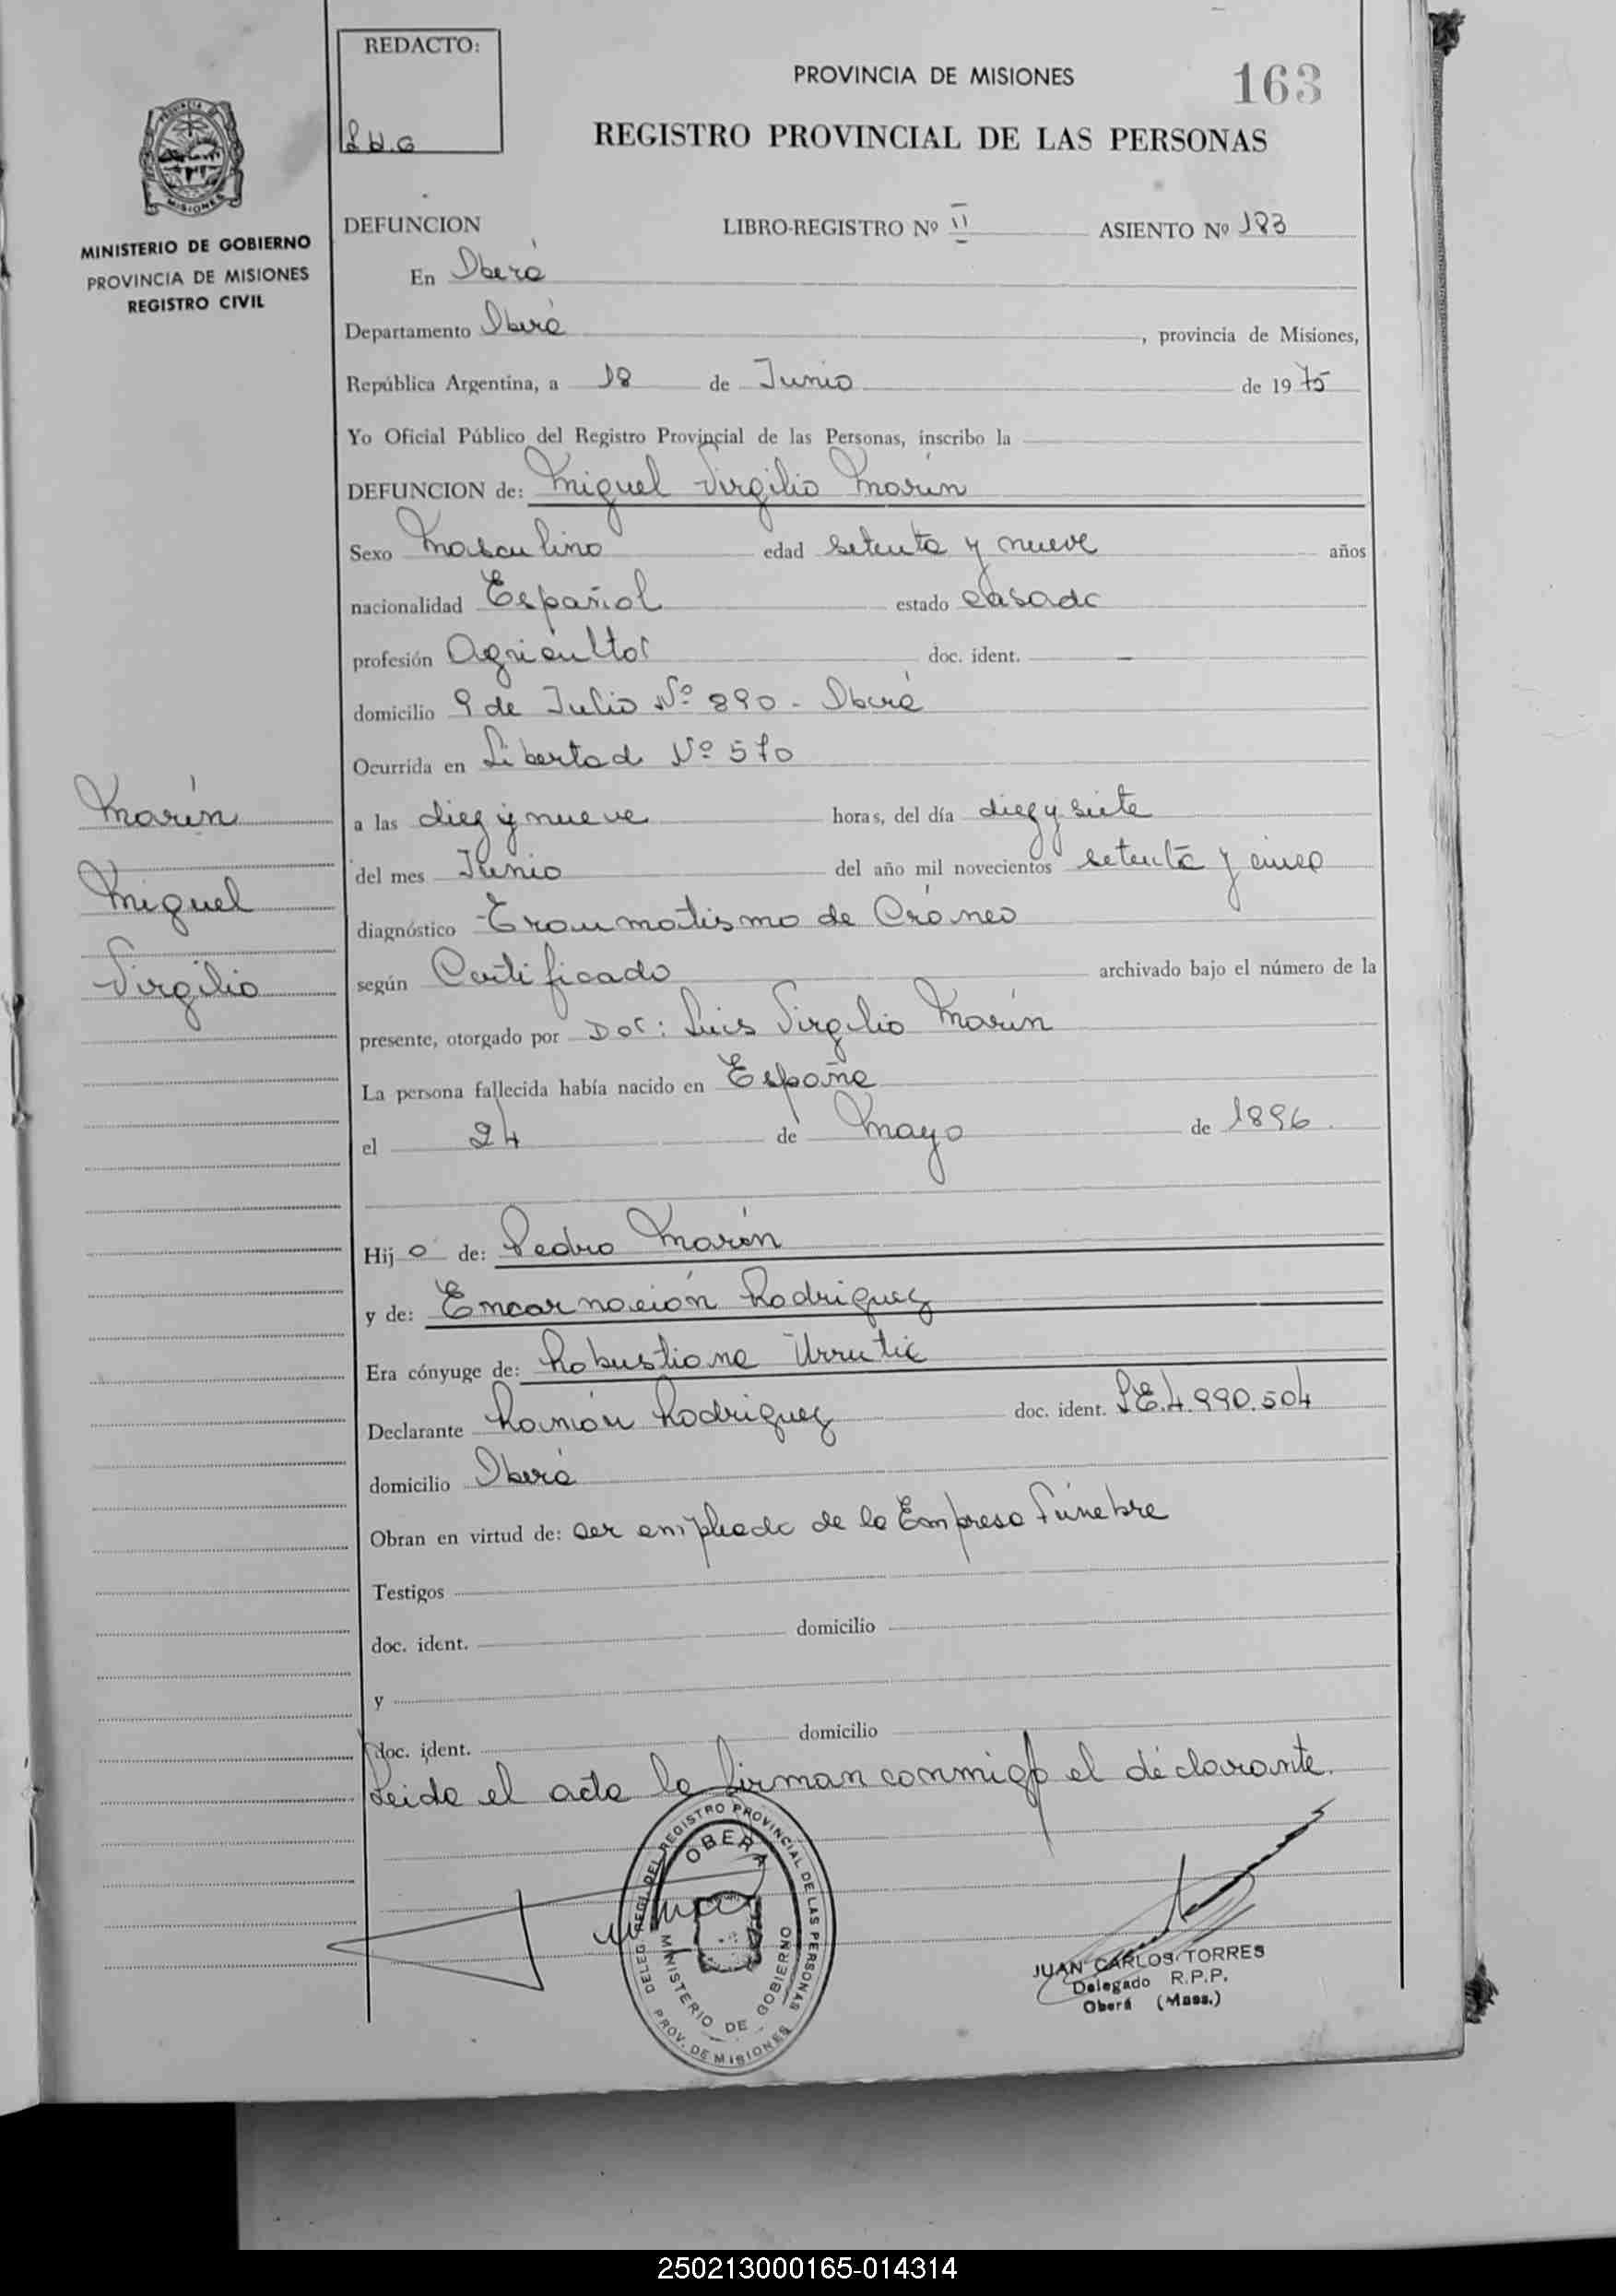 REDACTO:
L.H.G
PROVINCIA DE MISIONES
163
REGISTRO PROVINCIAL DE LAS PERSONAS
MISIONES
MINISTERIO DE GOBIERNO
PROVINCIA DE MISIONES
REGISTRO CIVIL
DEFUNCION LIBRO-REGISTRO Nº II ASIENTO Nº 183
En Oberá
Departamento Oberá, provincia de Misiones,
República Argentina, a 18 de Junio de 1975
Yo Oficial Público del Registro Provincial de las Personas, inscribo la
DEFUNCION de: Miguel Virgilio Marín
Sexo Masculino edad setenta y nueve años
nacionalidad Español estado casado
profesión Agricultor doc. ident. —
domicilio 9 de Julio Nº 890 - Oberá
Ocurrida en Libertad Nº 570
a las diez y nueve horas, del día diez y siete
del mes Junio del año mil novecientos setenta y cinco
diagnóstico Traumatismo de Cráneo
según Certificado archivado bajo el número de la
presente, otorgado por Doc: Luis Virgilio Marín
La persona fallecida había nacido en España
el 24 de Mayo de 1896.
Hijo de: Pedro Marín
y de: Encarnación Rodriguez
Era cónyuge de: Robustiana Urrutia
Declarante Ramón Rodriguez doc. ident. L.E. 4.990.504
domicilio Oberá
Obran en virtud de: ser empleado de la Empresa Fúnebre
Testigos
doc. ident. domicilio
y
doc. ident. domicilio
Leida el acta la firman conmigo el declarante.
Marín
Miguel
Virgilio
DELEG. REGL. DEL REGISTRO PROVINCIAL DE LAS PERSONAS
OBERA
MINISTERIO DE GOBIERNO
PROV. DE MISIONES
JUAN CARLOS TORRES
Delegado R.P.P.
Oberá (Mnes.)
250213000165-014314